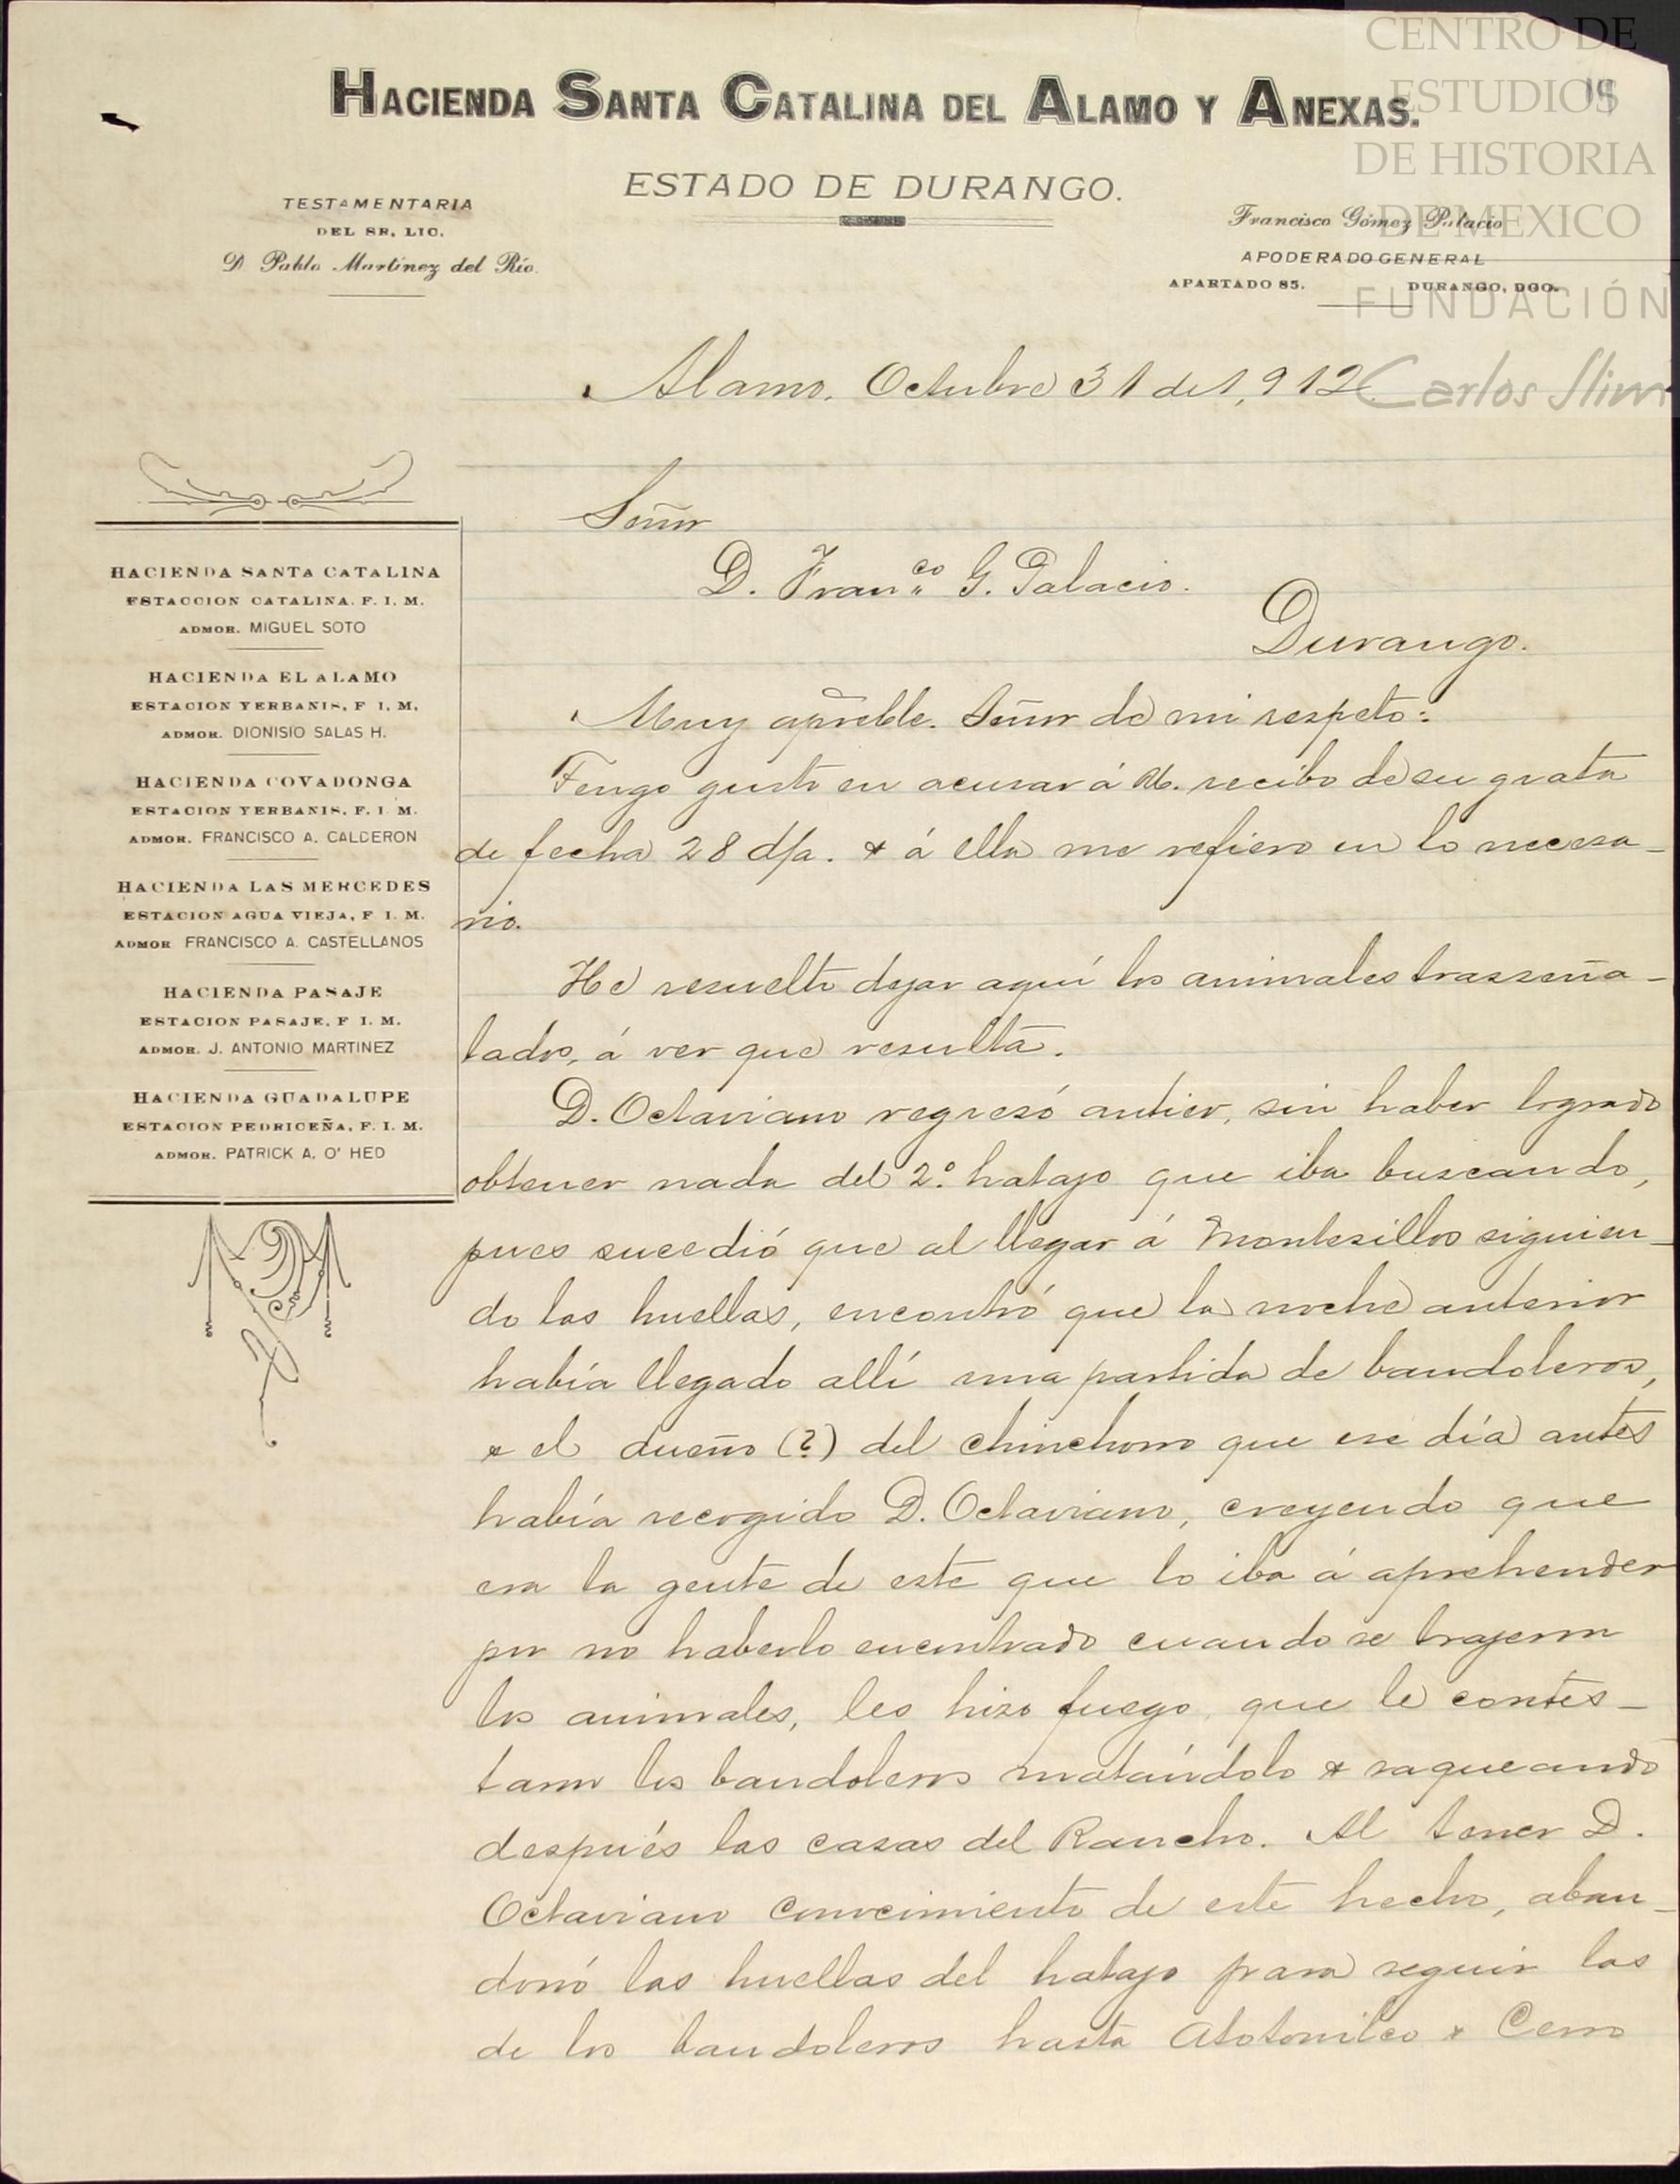 CENTRO DE
ESTUDIOS
DE HISTORIA
DE MEXICO
FUNDACIÓN
Carlos Slim
HACIENDA SANTA CATALINA DEL ALAMO Y ANEXAS.
ESTADO DE DURANGO.
TESTAMENTARIA
DEL SR. LIC.
D. Pablo Martínez del Río.
Francisco Gómez Palacio
APODERADO GENERAL
APARTADO 85. DURANGO, DGO.
Alamo, Octubre 31 de 1,912
HACIENDA SANTA CATALINA
ESTACCION CATALINA. F. I. M.
ADMOR. MIGUEL SOTO
HACIENDA EL ALAMO
ESTACION YERBANIS, F. I. M.
ADMOR. DIONISIO SALAS H.
HACIENDA COVADONGA
ESTACION YERBANIS, F. I. M.
ADMOR. FRANCISCO A. CALDERON
HACIENDA LAS MERCEDES
ESTACION AGUA VIEJA, F. I. M.
ADMOR FRANCISCO A. CASTELLANOS
HACIENDA PASAJE
ESTACION PASAJE, F. I. M.
ADMOR. J. ANTONIO MARTINEZ
HACIENDA GUADALUPE
ESTACION PEDRICEÑA, F. I. M.
ADMOR. PATRICK A. O' HED
Señor
D. Franco G. Palacio.
Durango.
Muy apreble. Señor de mi respeto:
Tengo gusto en acusar á Ud. recibo de su grata
de fecha 28 d/a. & á ella me refiero en lo necesa-
rio.
He resuelto dejar aquí los animales trasseña-
lados, á ver que resulta.
D. Octaviano regresó antier, sin haber logrado
obtener nada del 2º. hatajo que iba buscando,
pues sucedió que al llegar á Montesillos siguien-
do las huellas, encontró que la noche anterior
había llegado allí una partida de bandoleros,
& el dueño (?) del chinchorro que ese día antes
había recogido D. Octaviano, creyendo que
era la gente de este que lo iba á aprehender
por no haberlo encontrado cuando se trajeron
los animales, les hizo fuego, que le contes-
taron los bandoleros matándolo & saqueando
después las casas del Rancho. Al tener D.
Octaviano conocimiento de este hecho, aban-
donó las huellas del hatajo para seguir las
de los bandoleros hasta Atotonilco & Cerro